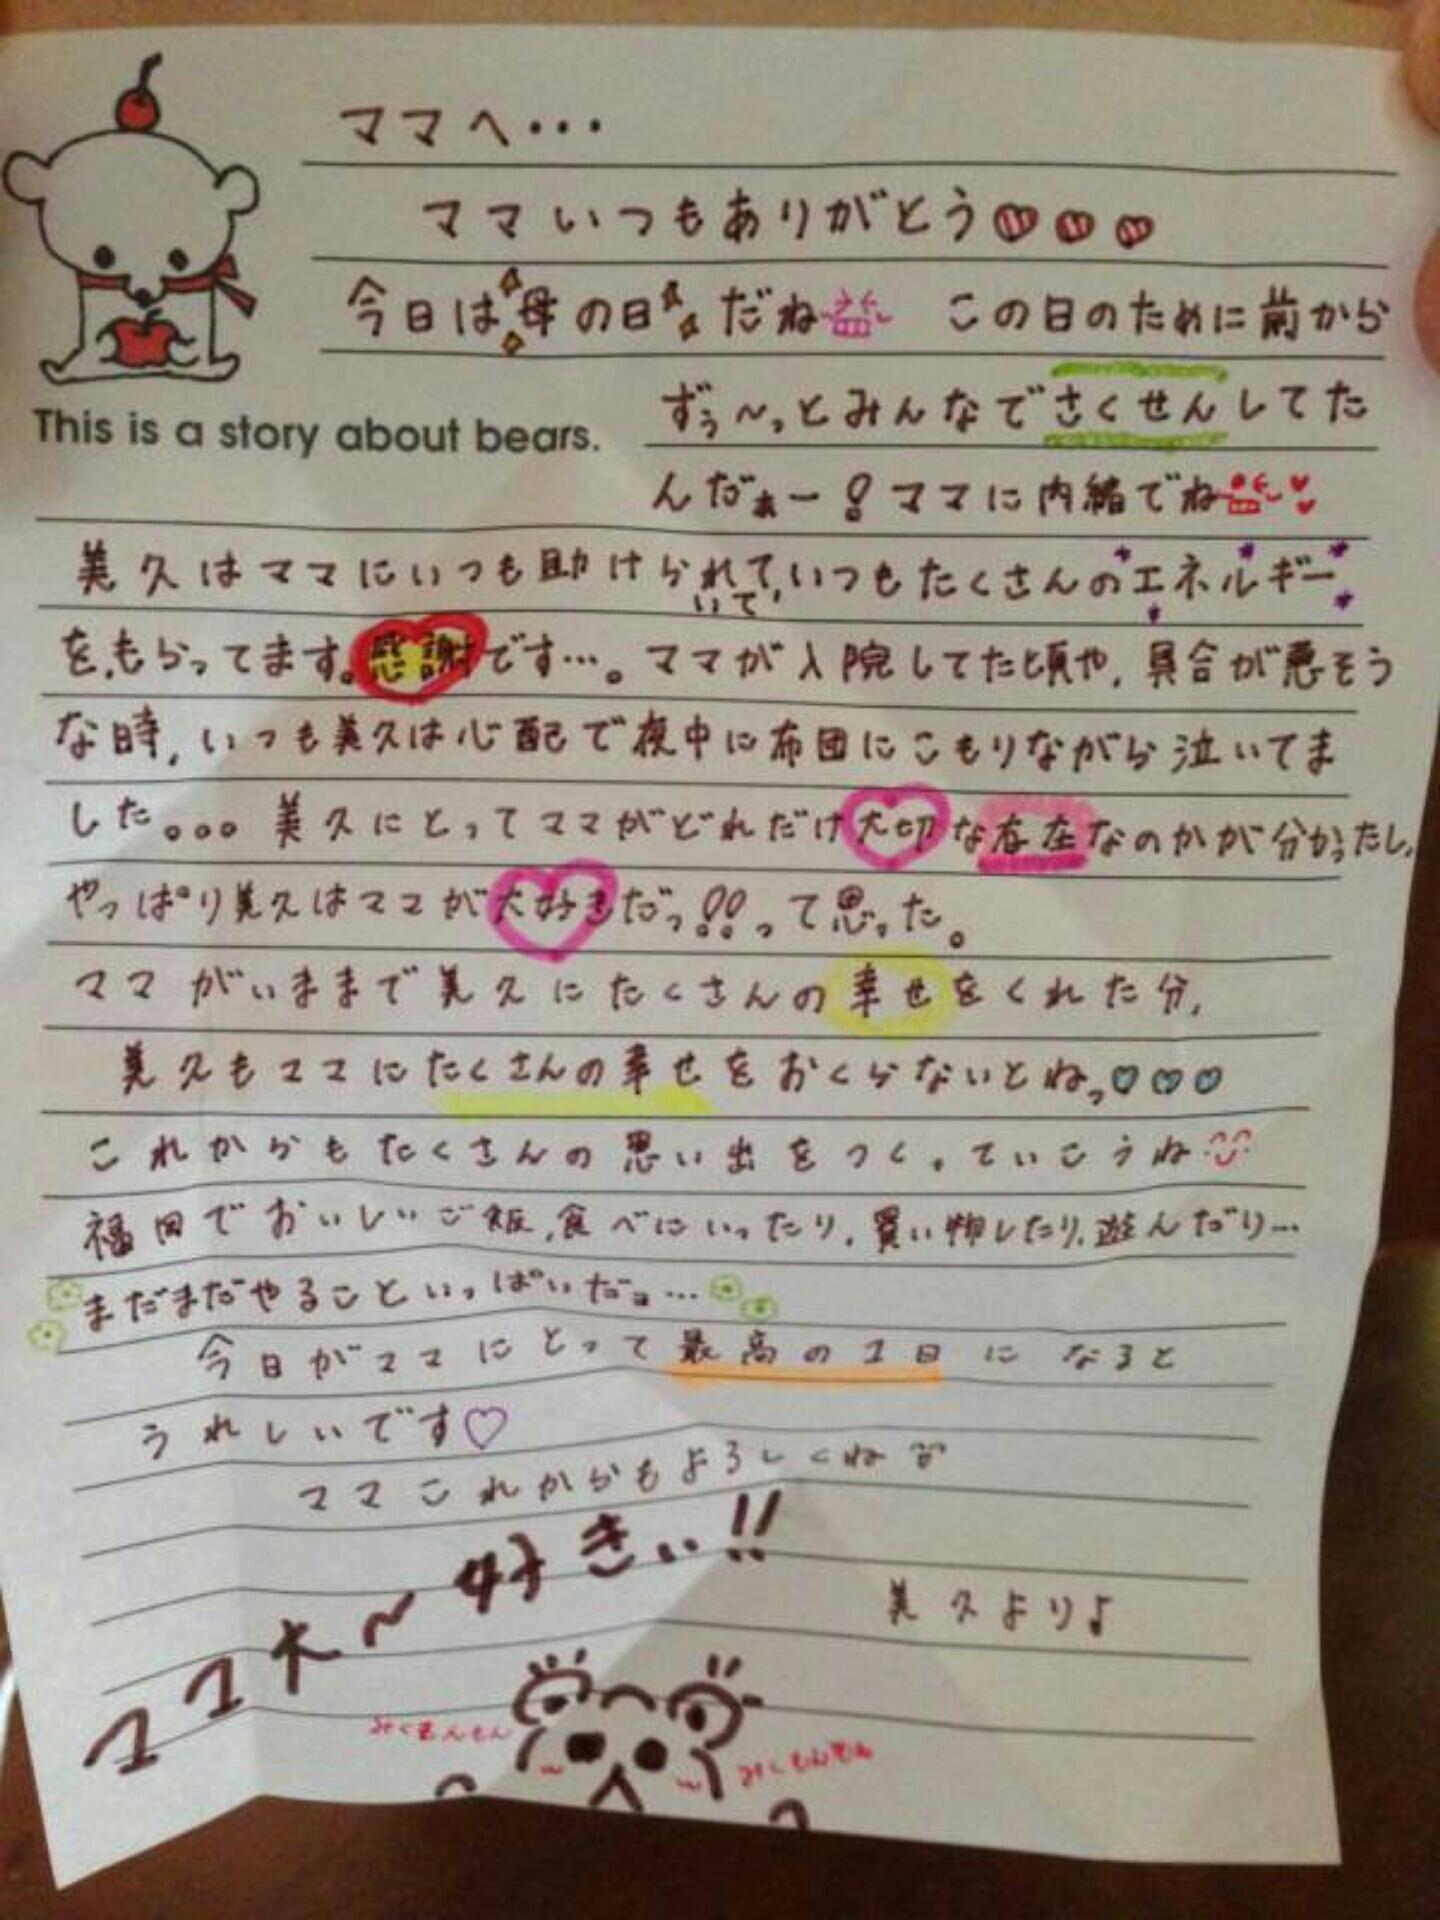 ママへ・・・
ママいつもありがとう
今日は母の日だね この日のために前から
This is a story about bears.
ずぅ〜っとみんなでさくせんしてた
んだぁー！ママに内緒でね
美久はママにいつも助けられていていつもたくさんのエネルギー
を、もらってます。感謝です…。ママが入院してた頃や、具合が悪そう
な時、いつも美久は心配で夜中に布団にこもりながら泣いてま
した。。。美久にとってママがどれだけ大切な存在なのかが分かったし、
やっぱり美久はママが大好きだっ!!って思った。
ママがいままで美久にたくさんの幸せをくれた分、
美久もママにたくさんの幸せをおくらないとねっ
これからもたくさんの思い出をつくっていこうね
福岡でおいしいご飯、食べにいったり、買い物したり、遊んだり…
まだまだやることいっぱいだョ…
今日がママにとって最高の1日になると
うれしいです♡
ママこれからもよろしくね
ママ大〜好きぃ!!
美久より♪
みくもんもん
みくもんもん